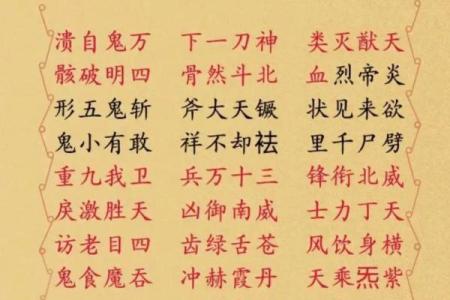 天猷灭类 神刀一下 万鬼自溃
炎帝烈血 北斗然骨 四明破骸
欲来见状 镢天大斧 斩鬼五形
劈尸千里 祛却不祥 敢有小鬼
威北衔锋 三十万兵 卫我九重
天丁力士 威南御凶 天胜激戾
横身饮风 苍舌绿齿 四目老访
紫炁乘天 丹霞赫冲 吞魔食鬼